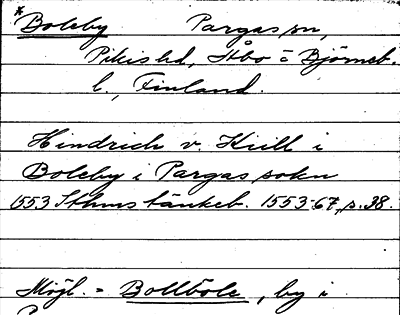 * Boleby Pargas sn,
Pikis hd, Åbo = Björneb.
l., Finland.
Hindrich v. Kiill i
Boleby i Pargas sokn
1553 Sthms tänkeb. 1553-67, s. 38.
Möjl. = Bollböle, by i